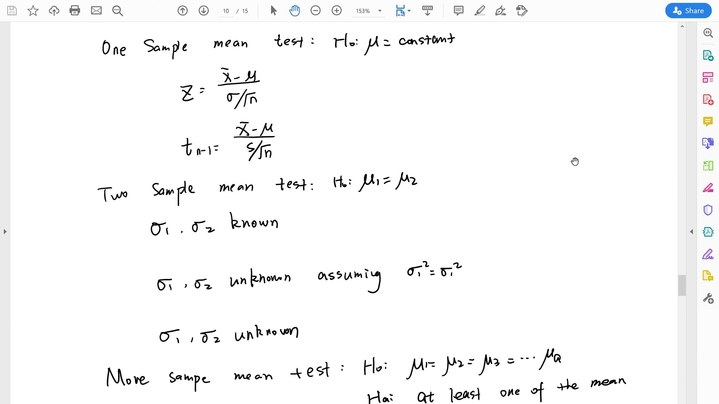 10 / 15
153%
Share
One Sample mean test: Ho: μ = constant
Z = x̄-μ / σ/√n
t n-1 = x̄-μ / s/√n
Two Sample mean test: Ho: μ1 = μ2
σ1, σ2 known
σ1, σ2 unknown assuming σ1² = σ1²
σ1, σ2 unknown
More sampe mean test: Ho: μ1 = μ2 = μ3 = ... μa
Ha: at least one of the mean